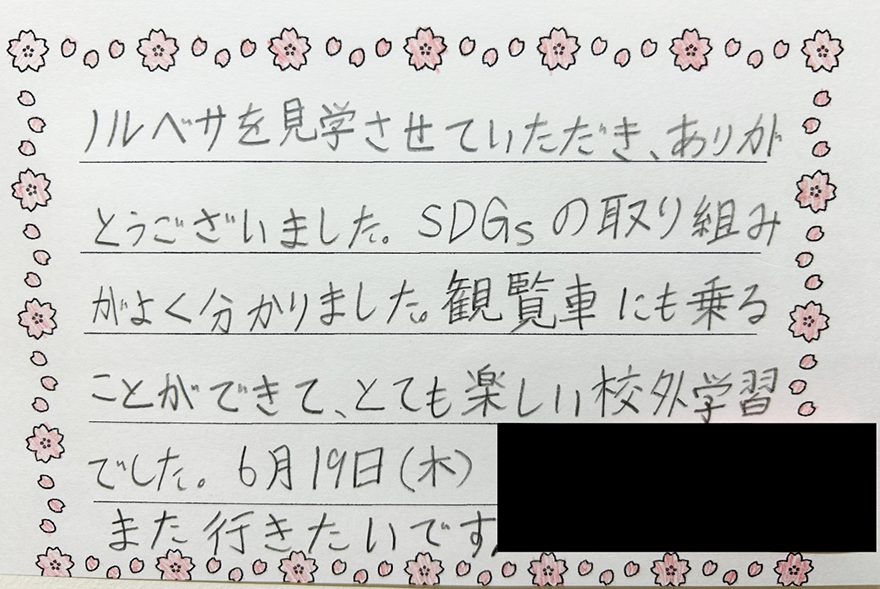 ノルベサを見学させていただき、ありが
とうございました。SDGsの取り組み
がよく分かりました。観覧車にも乗る
ことができて、とても楽しい校外学習
でした。6月19日(木)
また行きたいです。